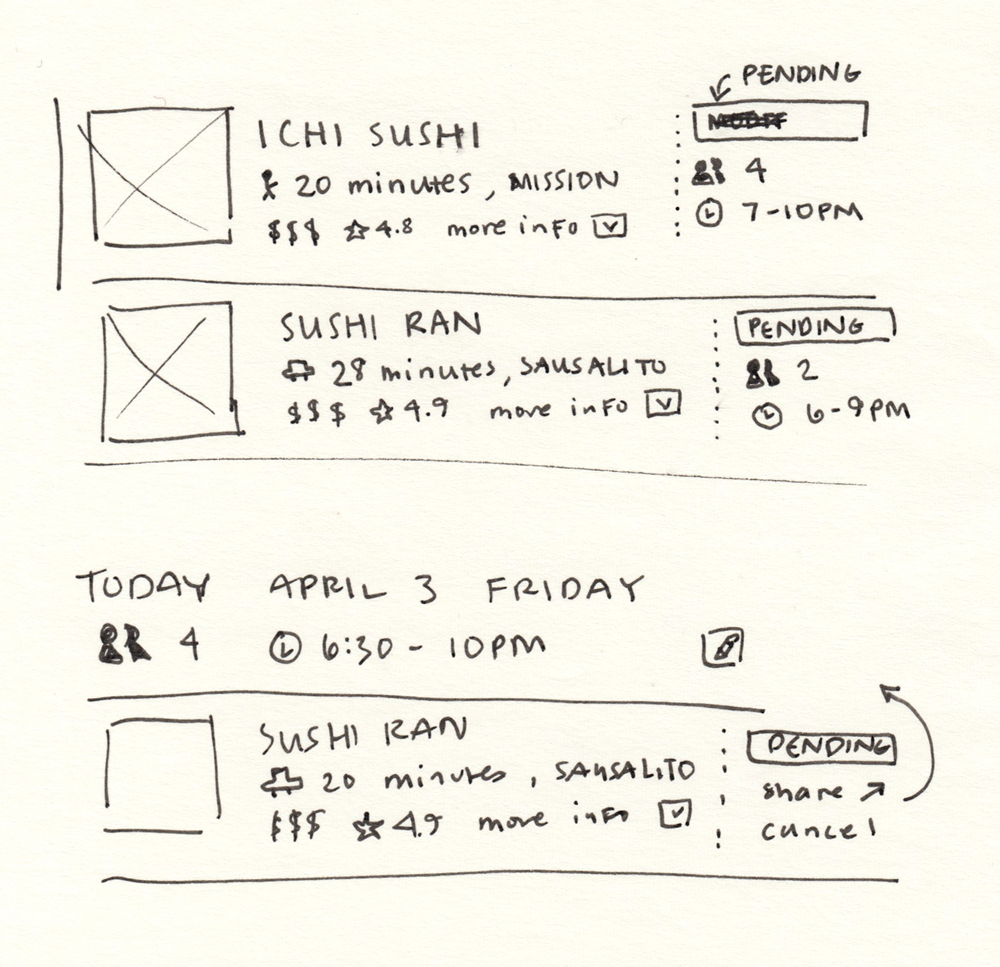 PENDING
ICHI SUSHI
20 minutes, MISSION
4
$$$ ☆4.8 more info
7-10PM
SUSHI RAN
PENDING
28 minutes, SAUSALITO
2
$$$ ☆4.9 more info
6-9PM
TODAY APRIL 3 FRIDAY
4 6:30 - 10PM
SUSHI RAN
PENDING
20 minutes, SAUSALITO
share ↗
$$$ ☆4.9 more info
cancel